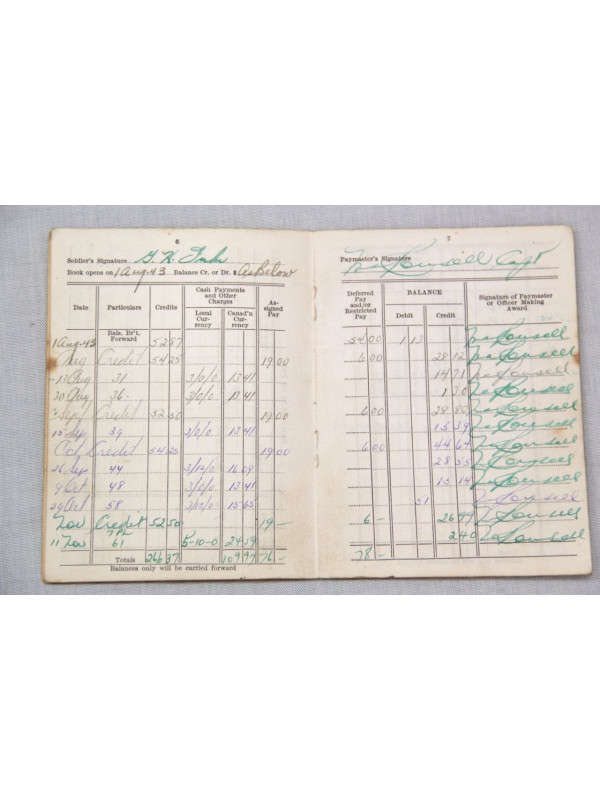 6
Soldier's Signature G. H.
Book opens on 1 Aug 43 Balance Cr. or Dr. $ As Below
Date Particulars Credits Cash Payments and Other Charges Local Currency Canad'n Currency Assigned Pay
1 Aug 43 Bala. Br't. Forward 52 87
Aug Credit 54 25 19 00
13 Aug 31 3/0/0 13 41
30 Aug 36 3/0/0 13 41
Sept Credit 52 50 19 00
15 Sep 39 3/0/0 13 41
Oct Credit 54 25 19 00
26 Sep 44 3/12/0 16 09
9 Oct 48 3/0/0 13 41
29 Oct 58 3/10/0 15 65
Nov Credit 52 50 19 —
11 Nov 61 5-10-0 24 59
Totals 266 37 109 97 76 —
Balances only will be carried forward
7
Paymaster's Signature Capt
Deferred Pay and/or Restricted Pay BALANCE Debit Credit Signature of Paymaster or Officer Making Award
54 00 1 13
6 00 28 12
14 71
1 30
6 00 28 80
15 39
6 00 44 64
28 55
15 14
51
6 — 26 99
2 40
78 —